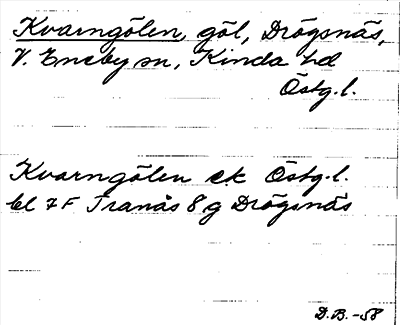 Kvarngölen, göl, Drögsnäs,
V. Eneby sn, Kinda hd
Östg.l.
Kvarngölen ek Östg.l.
bl 7F Tranås 8g Drögsnäs
D.B. -58